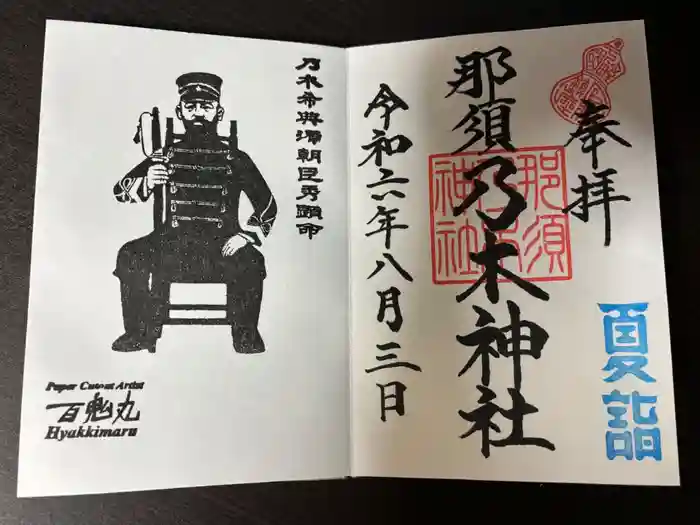 奉拝
夏詣
那須乃木神社
那須
乃木
神社
令和六年八月三日
乃木希典源朝臣秀顕命
Paper Cutout Artist
百鬼丸
Hyakkimaru